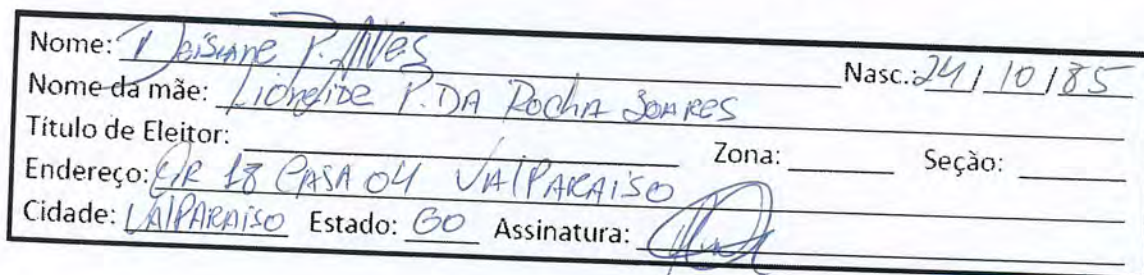 Nome: Deisiane P. Alves Nasc.: 24/10/85
Nome da mãe: P. DA ROCHA SOARES
Título de Eleitor: Zona: Seção:
Endereço: QR 18 CASA 04 VALPARAISO
Cidade: VALPARAISO Estado: GO Assinatura: